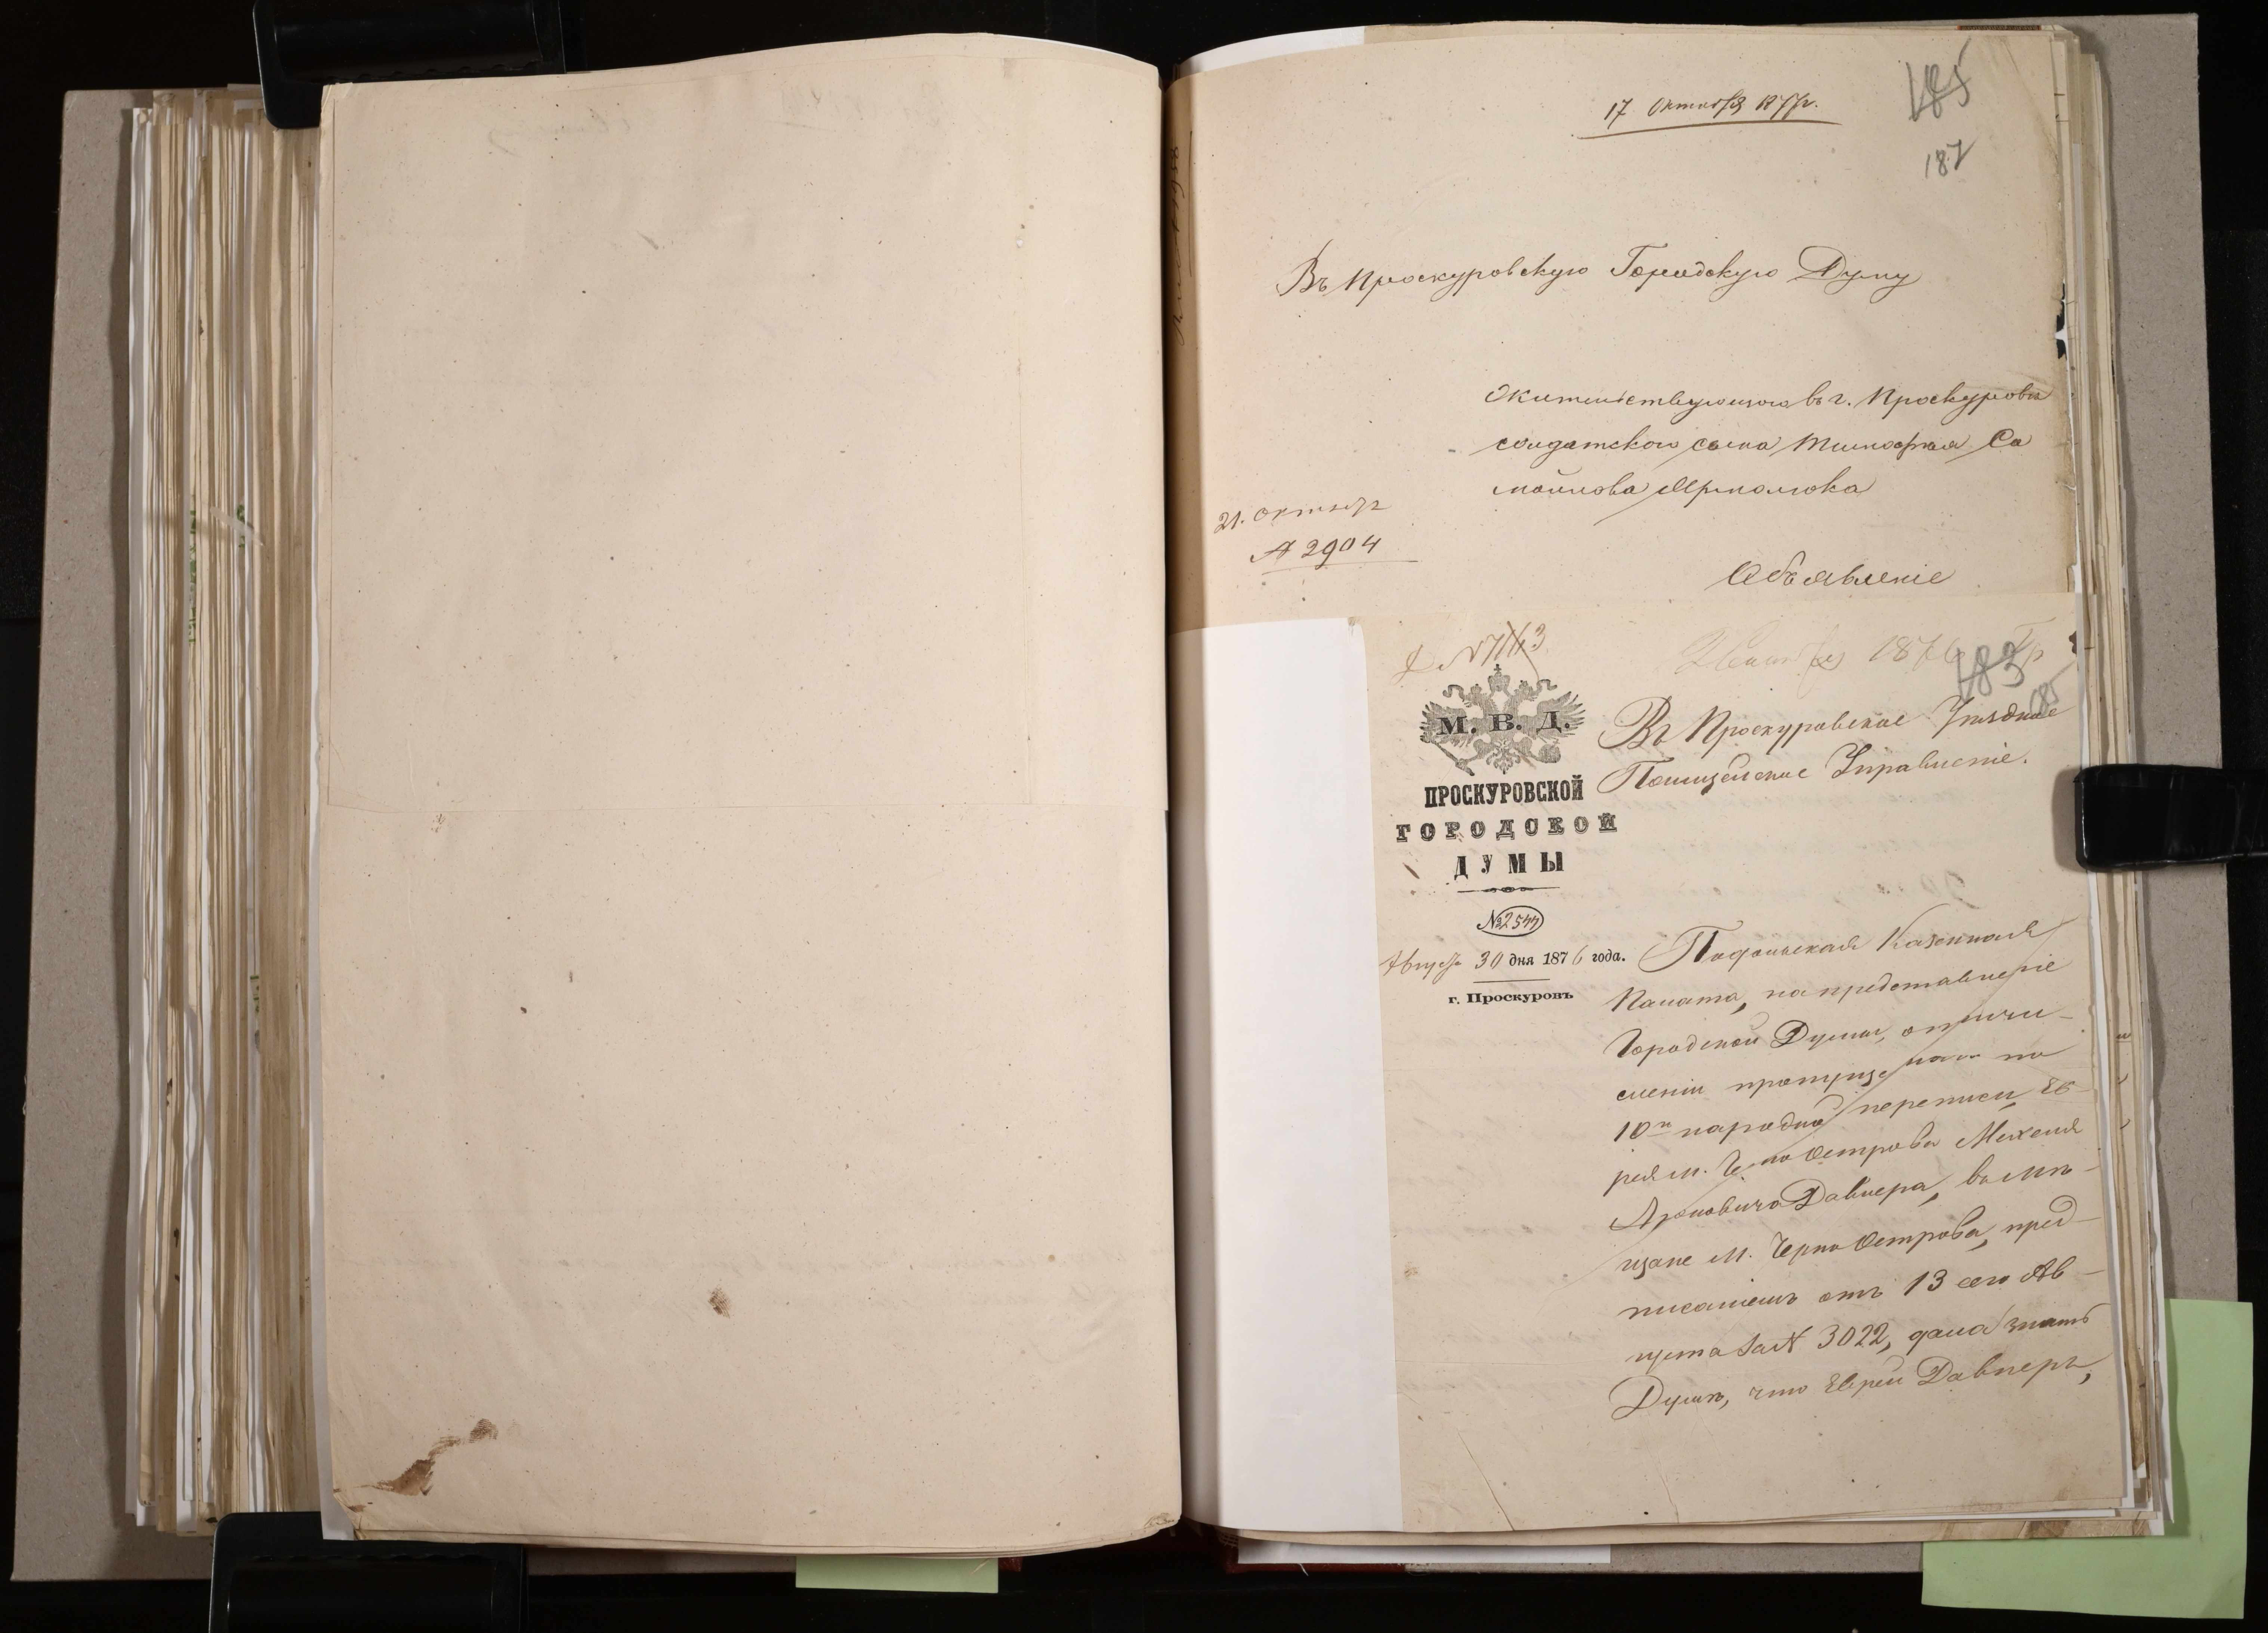 17 Октября 1877г.
185
187
Въ Проскуровскую Городскую Думу
Жительствующаго въ г. Проскуровѣ
солдатского сына Тимофея Са
мойлова Ярмолюка
21. октябр
№ 2904
Объявленіе
183
185
М. В. Д.
ПРОСКУРОВСКОЙ
ГОРОДСКОЙ
ДУМЫ
№ 2544
Августа 30 дня 1876 года.
г. Проскуровъ
Въ Проскуровское Уѣздное
Полицейское Управленіе.
Подольская Казенная
Палата, на представленіе
Городской Думы, о причи-
сленіи пропущеннаго по
10й народной переписи Ев-
рея м. Черно Острова Мехеля
Ароновича Давнера, въ мѣ-
щане м. Черно Острова, пред-
писаніемъ отъ 13 сего Ав-
густа за № 3022, дала знать
Думѣ, что Еврей Давнеръ,